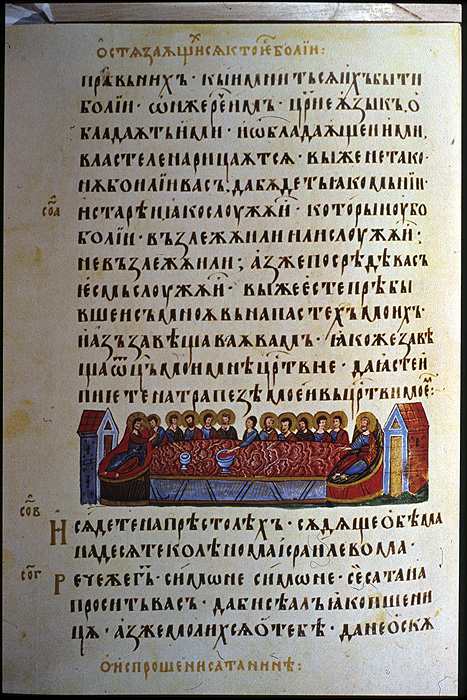 О стѧзаѧщиⷯсѧ кто ѥⷭ҇ болїи:
прⷤѣвьнихъ · кыи мнитьсѧ ихъ быти
болїи · ѡнже реⷱ҇ имъ · цр҃ие ѧзыкъ, о
бладаѫть ими · и ѡбладаѫщеи ими,
властеле нарицаѫтсѧ · вы же не тако ·
нѫ болїи въ васъ, да бѫдеть ꙗко мьнїи ·
соⷶ
и старѣи ꙗко слоужѫи · которыи оубо
болїи · възлежѧи ли или слоужѫи ;
не възлежѧи ли ; азже посрѣдѣ васъ
ѥсмь слоужѫи · вы же есте прѣбы
вшеи съ мноѫ въ напастехъ моихъ ·
и азъ завѣщаваѫ вамъ · ꙗкоже завѣ
ща ѡц҃ъ мои мнѣ цр҃твие · да ꙗсте и
пиете на трапезѣ моеи въ цр҃тви моеⷨ:
соⷡ
И сѧдете на прѣстолѣхъ · сѫдѧще обѣма
на десѧте колѣнома їсраилевома ·
соⷢ
Рече же г҃ь · симѡне симѡне · се сатана
просить васъ · да би сѣалъ ꙗко пшени
цѫ · азже молихсѧ о тебѣ · да не оскѫ
О испрошени сатанинѣ: